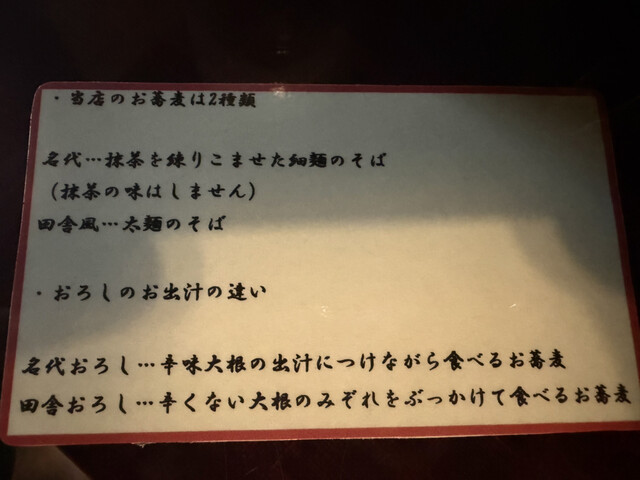 ・当店のお蕎麦は2種類
名代…抹茶を練りこませた細麺のそば
（抹茶の味はしません）
田舎風…太麺のそば
・おろしのお出汁の違い
名代おろし…辛味大根の出汁につけながら食べるお蕎麦
田舎おろし…辛くない大根のみぞれをぶっかけて食べるお蕎麦